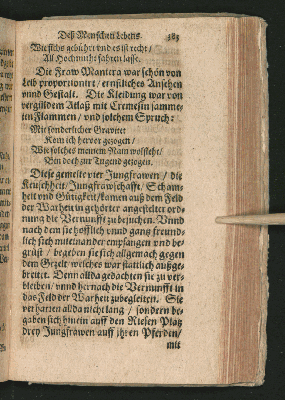 Deß Menschen Lebens. 383
Wie sichs gebührt vnd es ist recht/
All Hochmuths fahren lasse.
Die Fraw Mantera war schön von
Leib proportionirt / ernstliches Ansehen
vnnd Gestalt. Die Kleidung war von
vergüldem Atlaß mit Cremesin samme-
ten Flammen / vnd solchem Spruch:
Mit sonderlicher Gravitet
Kom ich hervor gezogen /
Wie solches meinem Nam wolsteht/
Bin doch zur Tugend gezogen.
Diese gemelte vier Jungfrawen / die
Keuschheit / Jungfrawschafft, Scham-
heit vnd Gütigkeit / kamen auß dem Feld
der Warheit in gehörter angestelter ord-
nung die Vernunfft zu besuchen. Vnnd
nach dem sie höfflich vnnd gantz freund-
lich sich miteinander empfangen vnd be-
grüßt / begeben sie sich allgemach gegen
dem Gezelt welches war stattlich außge-
breitet. Denn allda gedachten sie zu ver-
bleiben / vnnd hernach die Vernunfft in
das Feld der Warheit zu begleiten. Sie
verharren allda nicht lang / sondern be-
gaben sich hinein auff den Riesen Platz
Drey Jungfrawen auff ihren Pferden/
mit